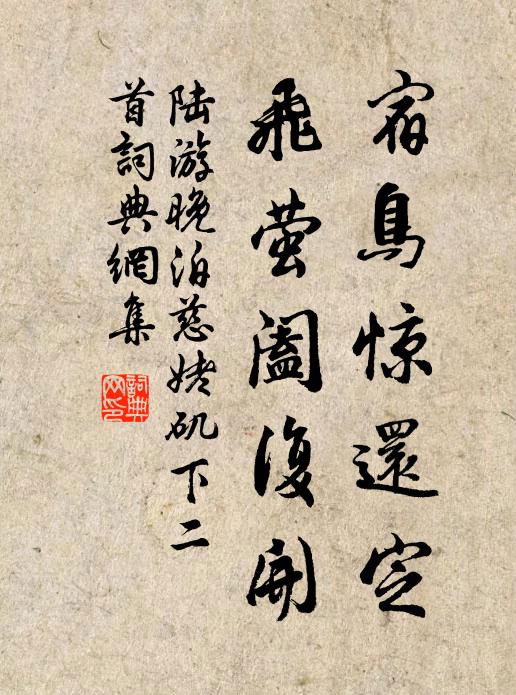 宿鳥惊還定
飛萤阖復開
陆游晚泊慈姥矶下二
首詞典網集
詞典网印